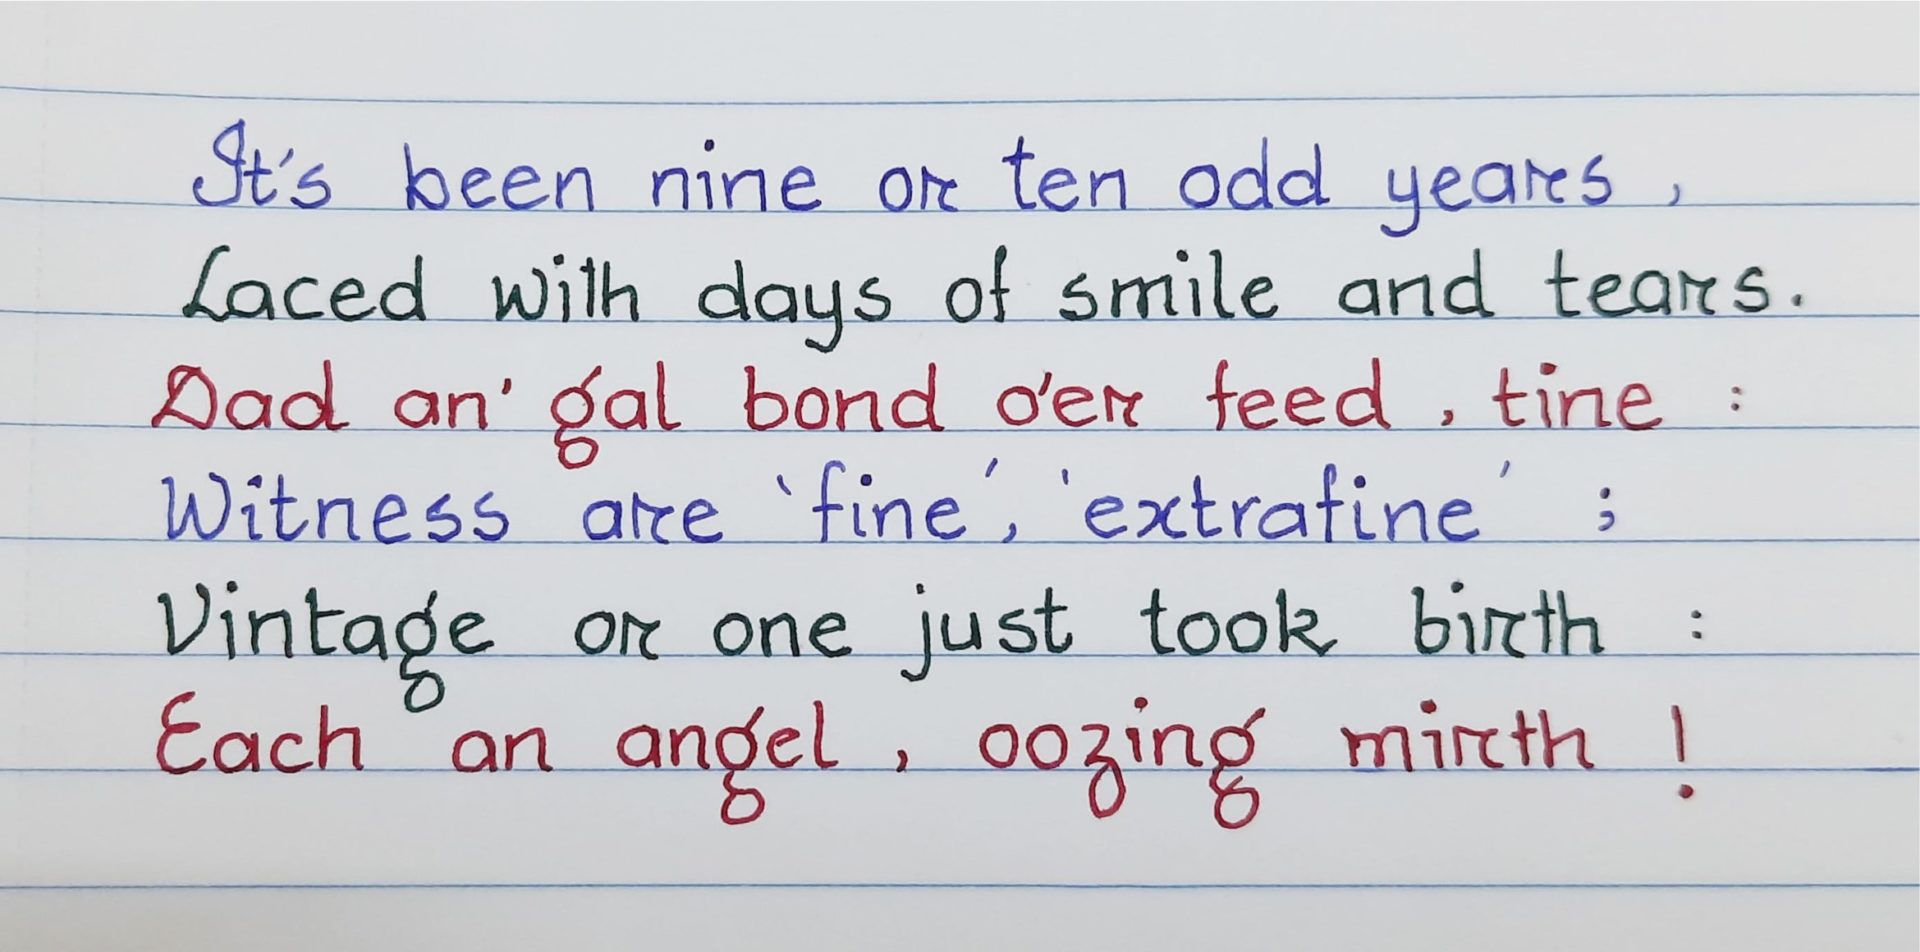 It's been nine or ten odd years,
Laced with days of smile and tears.
Dad an' gal bond o'er feed, tine :
Witness are 'fine', 'extrafine' ;
Vintage or one just took birth :
Each an angel, oozing mirth !